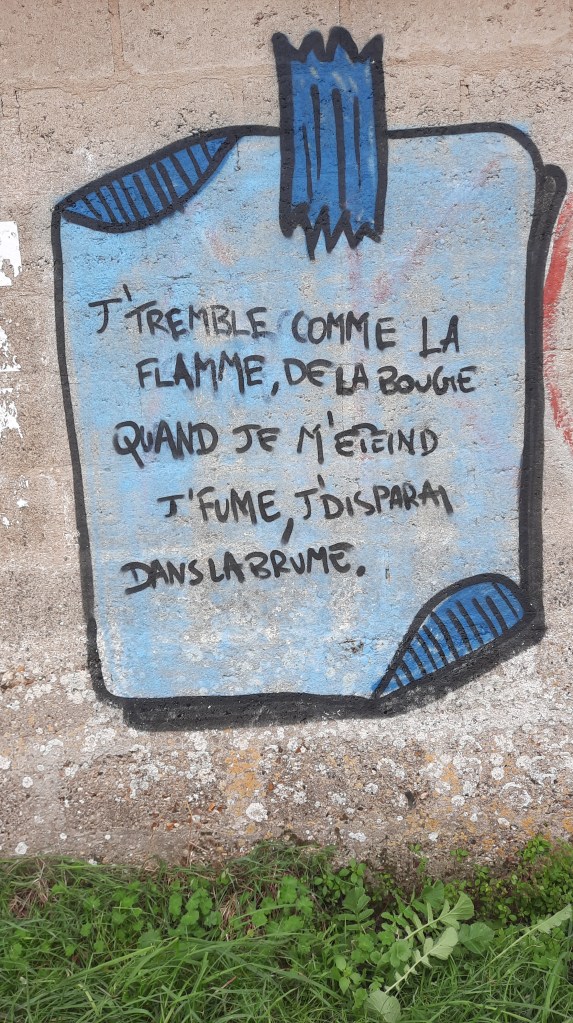 J'TREMBLE COMME LA
FLAMME, DE LA BOUGIE
QUAND JE M'ETEIND
J'FUME, J'DISPARAI
DANS LA BRUME.